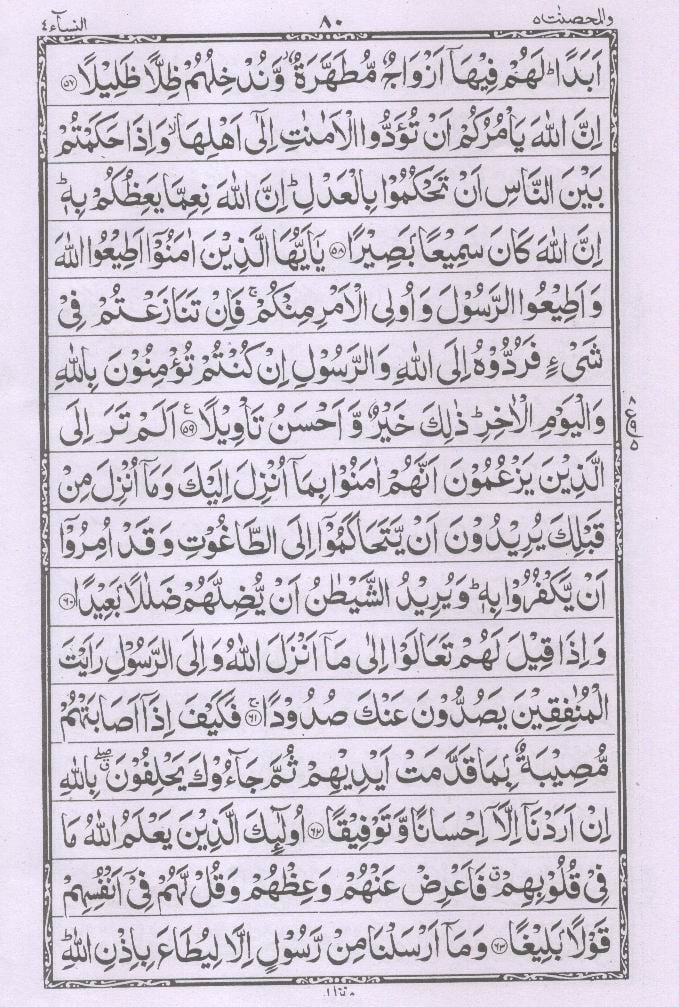 والمحصنت ٥ ٨٠ النسآء ٤
اَبَدًا ؕ لَهُمْ فِيْهَاۤ اَزْوَاجٌ مُّطَهَّرَةٌ ۙ وَّنُدْخِلُهُمْ ظِلًّا ظَلِيْلًا ﴿٥٧﴾
اِنَّ اللّٰهَ يَاْمُرُكُمْ اَنْ تُؤَدُّوا الْاَمٰنٰتِ اِلٰۤى اَهْلِهَا ۙ وَاِذَا حَكَمْتُمْ
بَيْنَ النَّاسِ اَنْ تَحْكُمُوْا بِالْعَدْلِ ؕ اِنَّ اللّٰهَ نِعِمَّا يَعِظُكُمْ بِهٖ ؕ
اِنَّ اللّٰهَ كَانَ سَمِيْعًۢا بَصِيْرًا ﴿٥٨﴾ يٰۤاَيُّهَا الَّذِيْنَ اٰمَنُوْۤا اَطِيْعُوا اللّٰهَ
وَاَطِيْعُوا الرَّسُوْلَ وَاُولِى الْاَمْرِ مِنْكُمْ ۚ فَاِنْ تَنَازَعْتُمْ فِيْ
شَيْءٍ فَرُدُّوْهُ اِلَى اللّٰهِ وَالرَّسُوْلِ اِنْ كُنْتُمْ تُؤْمِنُوْنَ بِاللّٰهِ
وَالْيَوْمِ الْاٰخِرِ ؕ ذٰلِكَ خَيْرٌ وَّاَحْسَنُ تَاْوِيْلًا ﴿٥٩﴾ ع اَلَمْ تَرَ اِلَى
الَّذِيْنَ يَزْعُمُوْنَ اَنَّهُمْ اٰمَنُوْا بِمَاۤ اُنْزِلَ اِلَيْكَ وَمَاۤ اُنْزِلَ مِنْ
قَبْلِكَ يُرِيْدُوْنَ اَنْ يَّتَحَاكَمُوْۤا اِلَى الطَّاغُوْتِ وَقَدْ اُمِرُوْۤا
اَنْ يَّكْفُرُوْا بِهٖ ؕ وَيُرِيْدُ الشَّيْطٰنُ اَنْ يُّضِلَّهُمْ ضَلٰلًۢا بَعِيْدًا ﴿٦٠﴾
وَاِذَا قِيْلَ لَهُمْ تَعَالَوْا اِلٰى مَاۤ اَنْزَلَ اللّٰهُ وَاِلَى الرَّسُوْلِ رَاَيْتَ
الْمُنٰفِقِيْنَ يَصُدُّوْنَ عَنْكَ صُدُوْدًا ﴿٦١﴾ ۚ فَكَيْفَ اِذَاۤ اَصَابَتْهُمْ
مُّصِيْبَةٌۢ بِمَا قَدَّمَتْ اَيْدِيْهِمْ ثُمَّ جَآءُوْكَ يَحْلِفُوْنَ ۖ بِاللّٰهِ
اِنْ اَرَدْنَاۤ اِلَّاۤ اِحْسَانًا وَّتَوْفِيْقًا ﴿٦٢﴾ اُولٰٓئِكَ الَّذِيْنَ يَعْلَمُ اللّٰهُ مَا
فِيْ قُلُوْبِهِمْ ۗ فَاَعْرِضْ عَنْهُمْ وَعِظْهُمْ وَقُلْ لَّهُمْ فِيْۤ اَنْفُسِهِمْ
قَوْلًۢا بَلِيْغًا ﴿٦٣﴾ وَمَاۤ اَرْسَلْنَا مِنْ رَّسُوْلٍ اِلَّا لِيُطَاعَ بِاِذْنِ اللّٰهِ ؕ